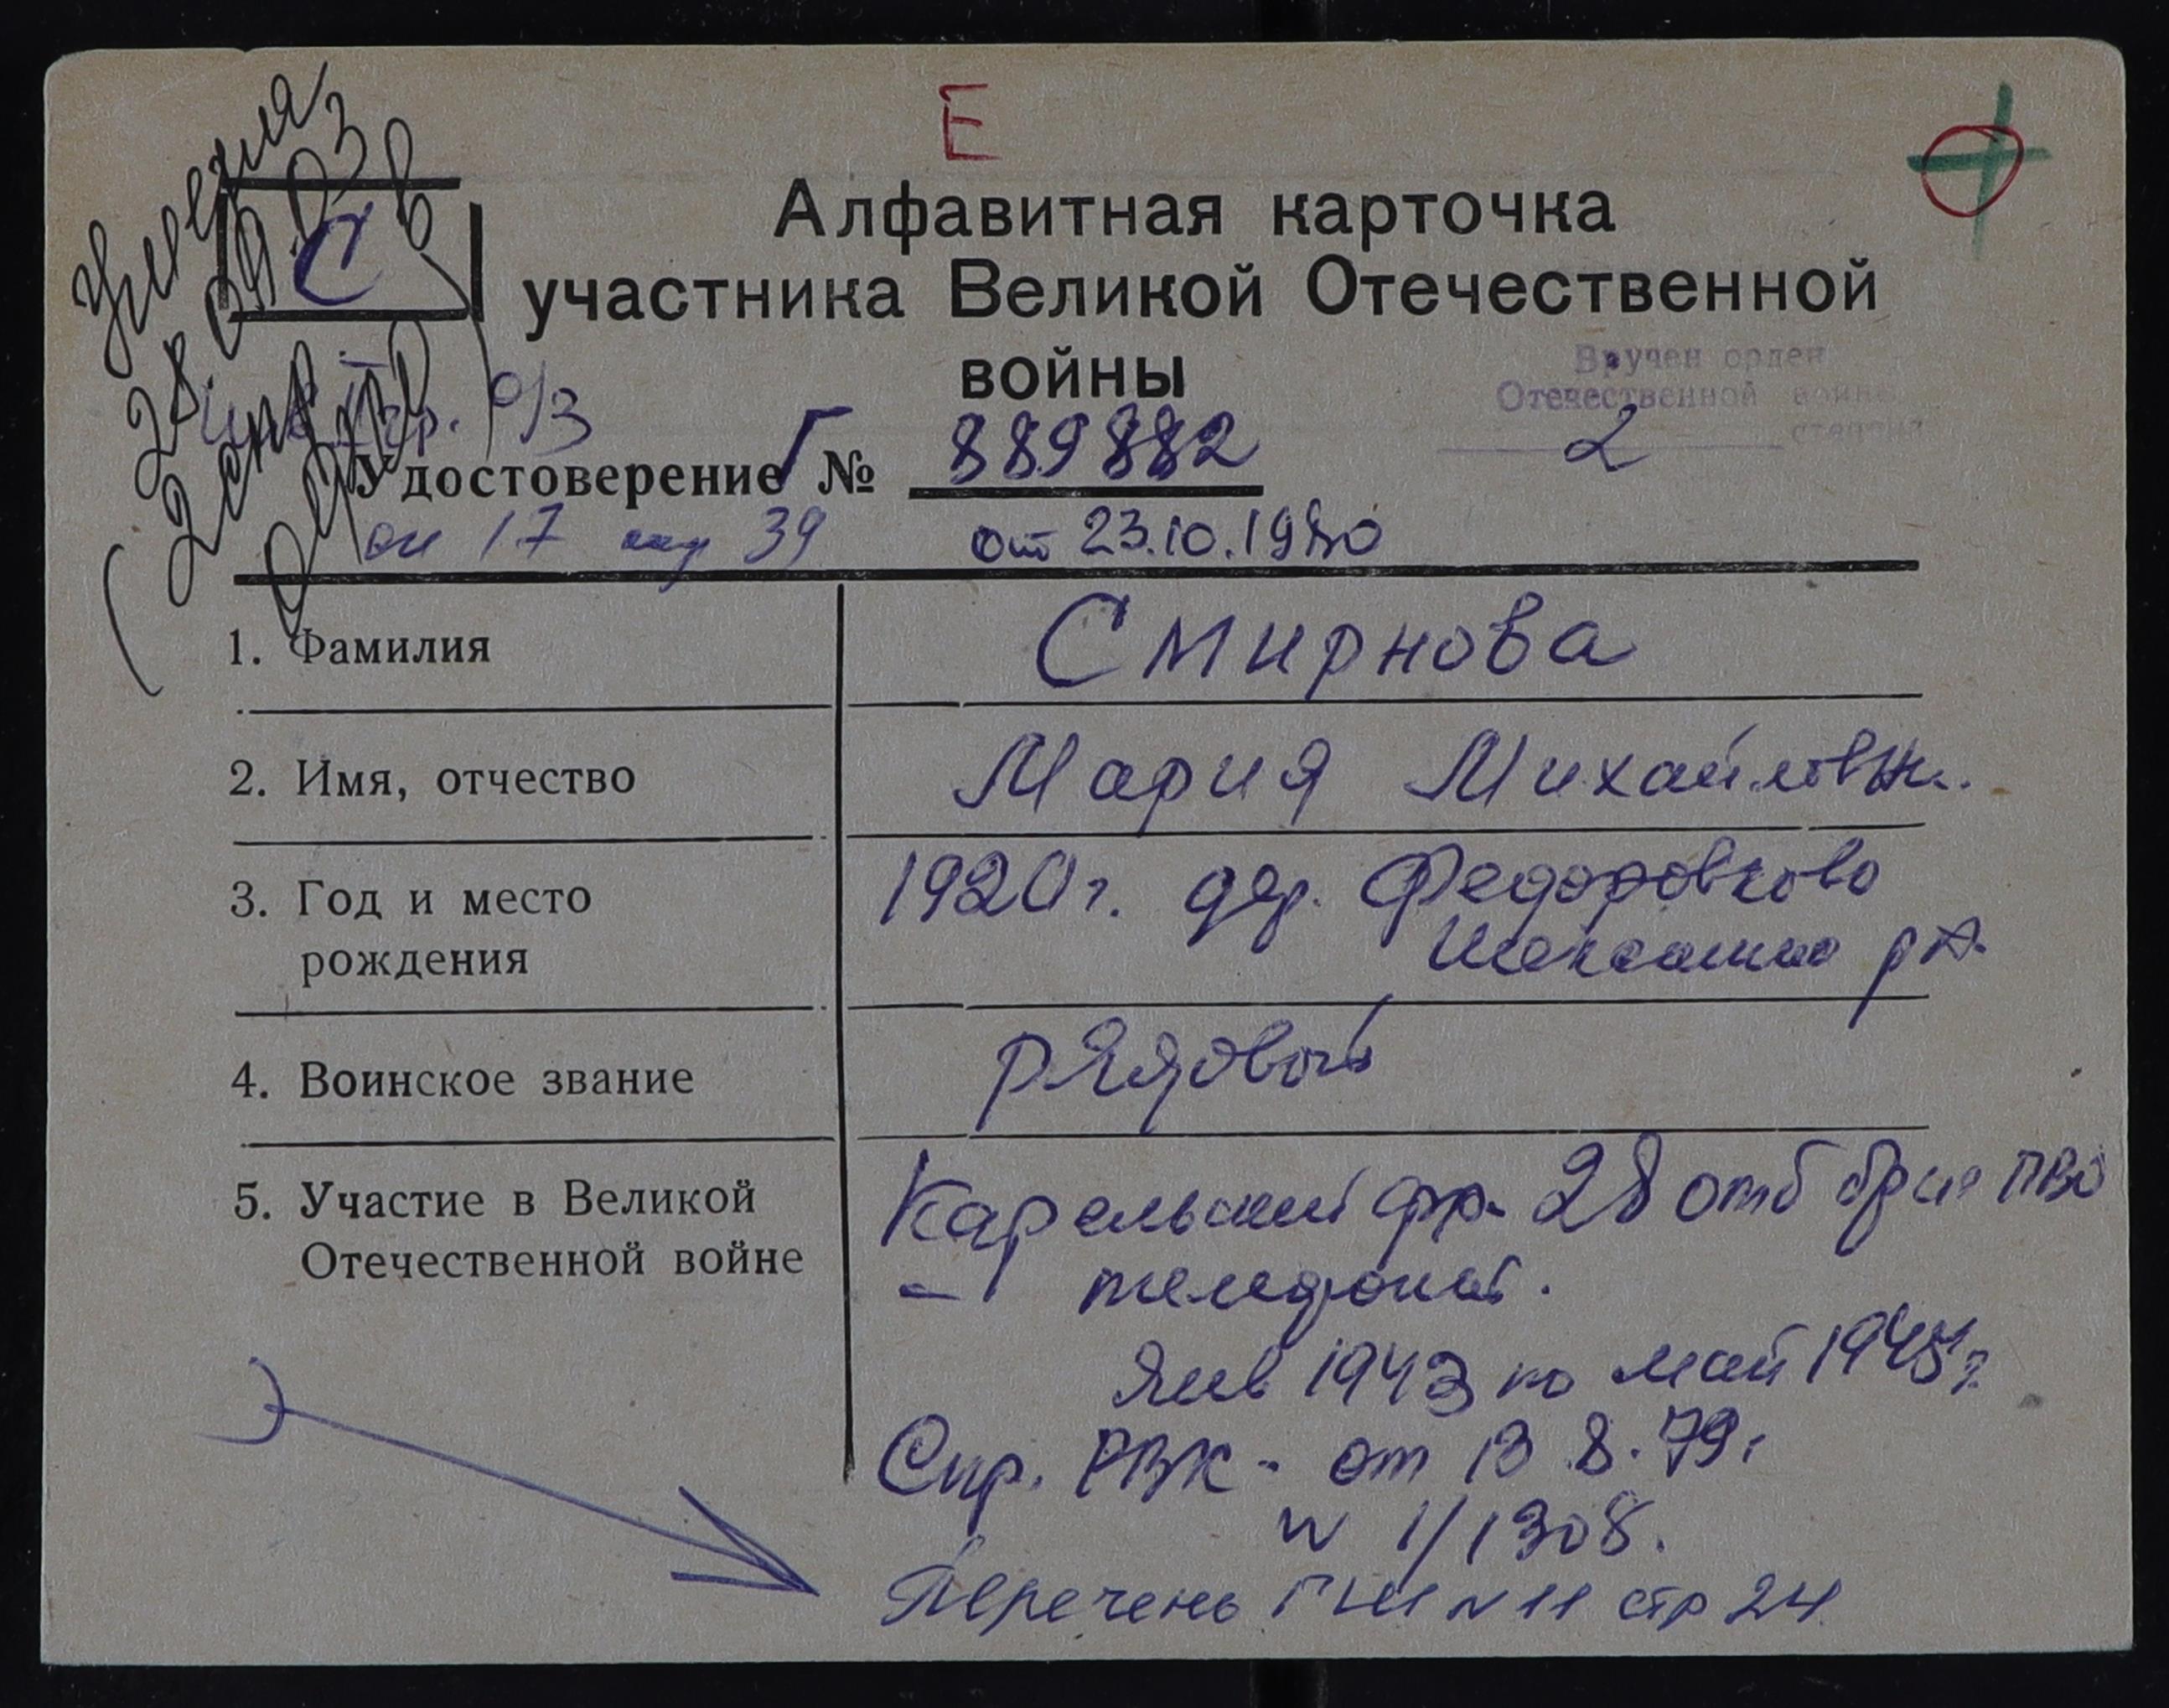 Е
Умерла
28.09.03
С
Алфавитная карточка
участника Великой Отечественной
войны
Вручен орден
Отечественной войны
2 степени
гр. о/з
Удостоверение Г № 889882
17 39
от 23.10.1980
1. Фамилия
Смирнова
2. Имя, отчество
Мария Михайловн.
3. Год и место
рождения
1920г. дер. Федоровково
р-н.
4. Воинское звание
рядовой
5. Участие в Великой
Отечественной войне
Карельский фр- 28 ПВО
- телефонист.
Янв 1943 по май 1945г.
Спр. РВК - от 13.8.79г
N 1/1308.
Перечень ГШ N 11 стр 24